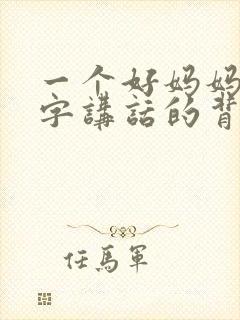 一个好妈妈
字講話的背
任馬軍